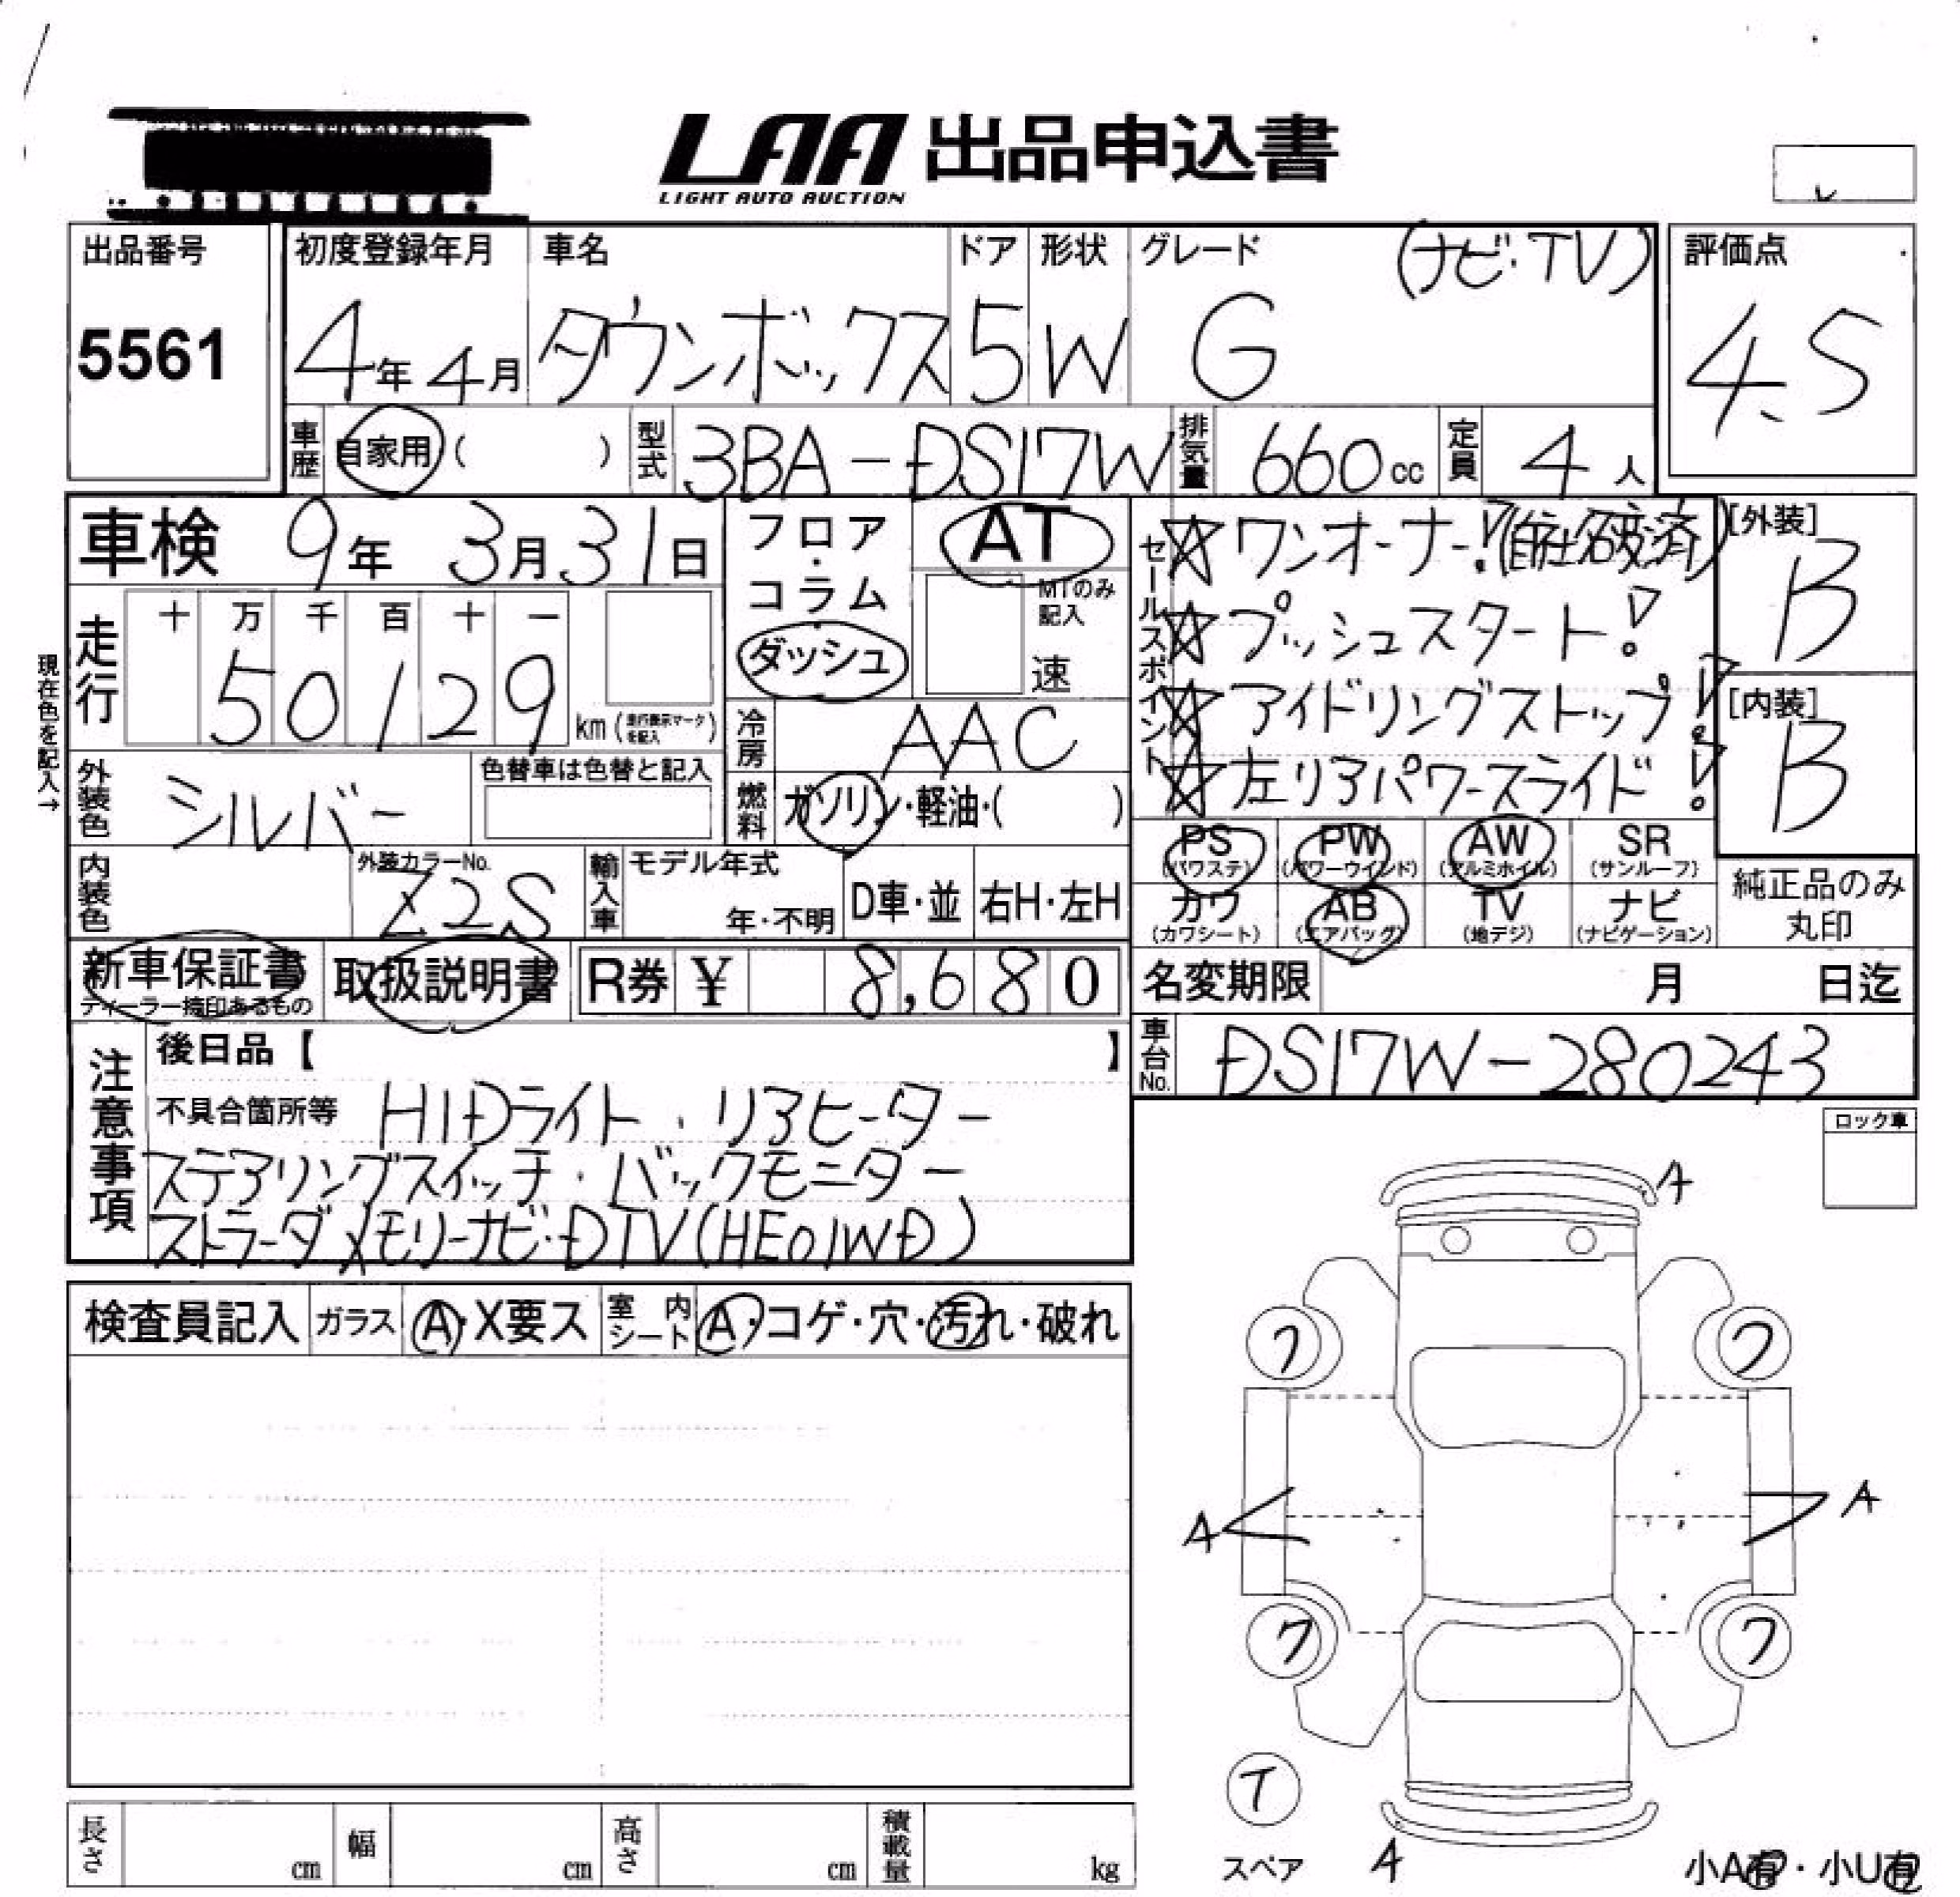 LAA 出品申込書
LIGHT AUTO AUCTION
出品番号
5561
初度登録年月
4年4月
車名
タウンボックス
ドア
5
形状
W
グレード (ナビ・TV)
G
評価点
4.5
車歴 自家用( )
型式 3BA-DS17W
排気量 660cc
定員 4人
車検 9年 3月31日
フロア・コラム
ダッシュ
AT
MTのみ記入
速
セールスポイント
☆ワンオーナー!(自社名変済)
☆プッシュスタート!
☆アイドリングストップ!
☆左リアパワースライド!
[外装]
B
[内装]
B
現在色を記入→
走行
十 万 千 百 十 一
50129 km (走行表示マークを記入)
冷房 AAC
外装色 シルバー
色替車は色替と記入
燃料 ガソリン・軽油・( )
内装色
外装カラーNo.
Z2S
輸入車 モデル年式
年・不明
D車・並
右H・左H
PS (パワステ)
PW (パワーウインド)
AW (アルミホイル)
SR (サンルーフ)
カワ (カワシート)
AB (エアバッグ)
TV (地デジ)
ナビ (ナビゲーション)
純正品のみ
丸印
新車保証書
ディーラー捺印あるもの
取扱説明書
R券 ¥ 8,680
名変期限 月 日迄
車台No. DS17W-280243
注意事項
後日品【 】
不具合箇所等 HIDライト・リアヒーター
ステアリングスイッチ・バックモニター
ストラーダメモリーナビ・DTV(HE01WD)
ロック車
検査員記入 ガラス A・X要ス 室内シート A・コゲ・穴・汚れ・破れ
A
ワ ワ
A A
ワ ワ
T
スペア
A
小A有・小U有
長さ cm 幅 cm 高さ cm 積載量 kg